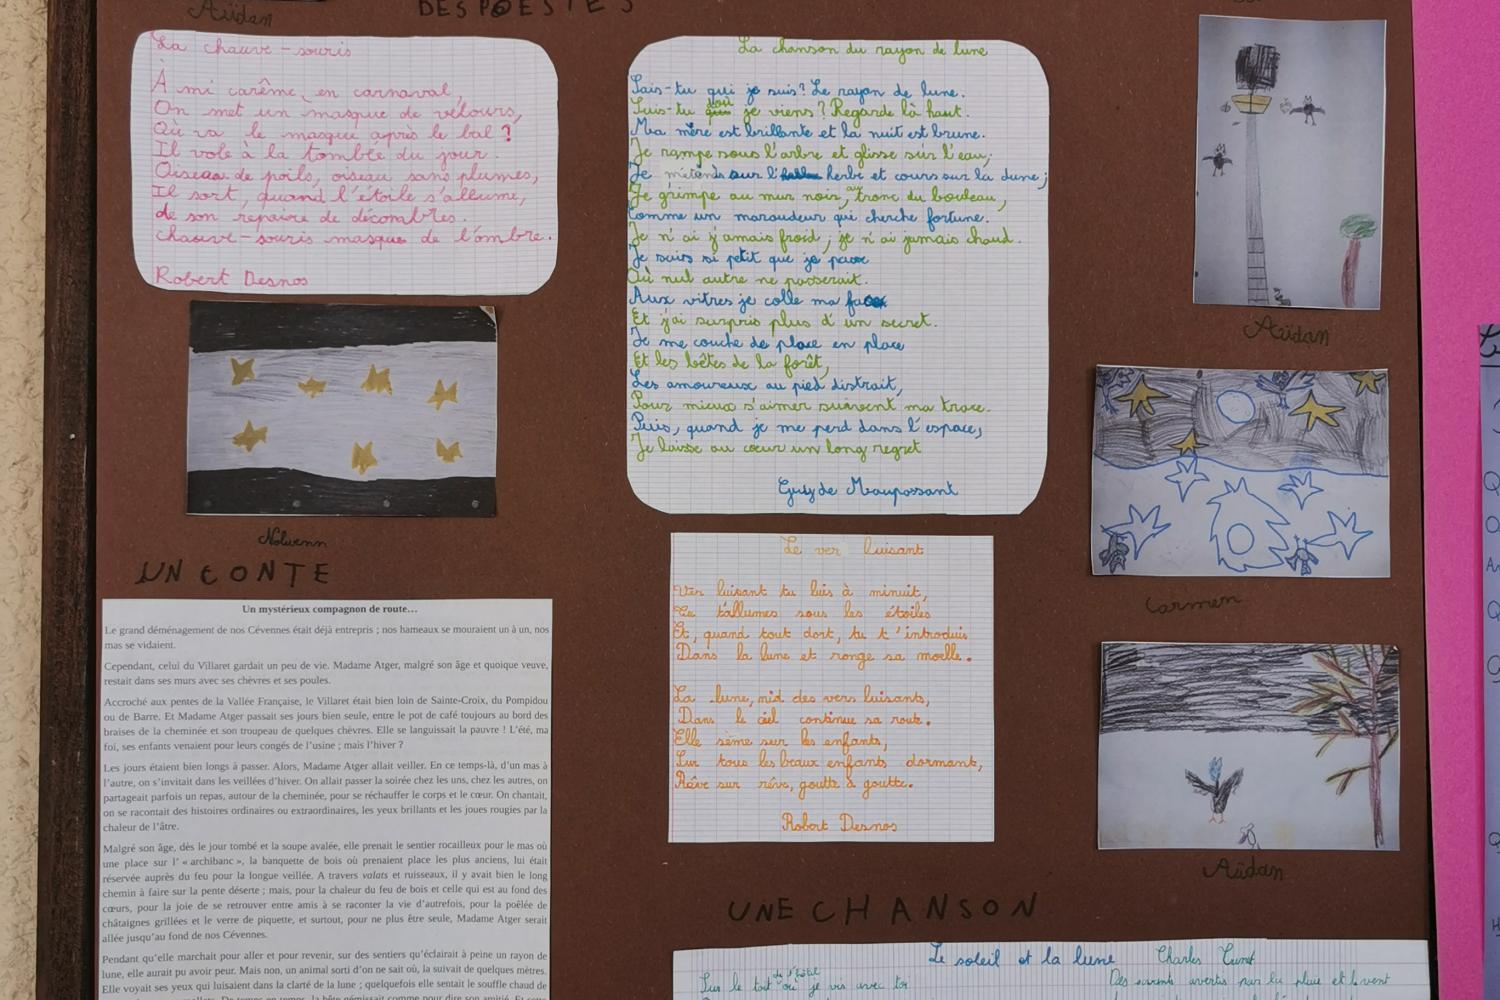 Aüdan
DES POÉSIES
La chauve-souris
À mi carême, en carnaval,
On met un masque de velours,
Où va le masque après le bal ?
Il vole à la tombée du jour.
Oiseau de poils, oiseau sans plumes,
Il sort, quand l'étoile s'allume,
de son repaire de décombres.
chauve-souris masque de l'ombre.
Robert Desnos
Nolwenn
UN CONTE
Un mystérieux compagnon de route…
Le grand déménagement de nos Cévennes était déjà entrepris ; nos hameaux se mouraient un à un, nos
mas se vidaient.
Cependant, celui du Villaret gardait un peu de vie. Madame Atger, malgré son âge et quoique veuve,
restait dans ses murs avec ses chèvres et ses poules.
Accroché aux pentes de la Vallée Française, le Villaret était bien loin de Sainte-Croix, du Pompidou
ou de Barre. Et Madame Atger passait ses jours bien seule, entre le pot de café toujours au bord des
braises de la cheminée et son troupeau de quelques chèvres. Elle se languissait la pauvre ! L'été, ma
foi, ses enfants venaient pour leurs congés de l'usine ; mais l'hiver ?
Les jours étaient bien longs à passer. Alors, Madame Atger allait veiller. En ce temps-là, d'un mas à
l'autre, on s'invitait dans les veillées d'hiver. On allait passer la soirée chez les uns, chez les autres, on
partageait parfois un repas, autour de la cheminée, pour se réchauffer le corps et le cœur. On chantait,
on se racontait des histoires ordinaires ou extraordinaires, les yeux brillants et les joues rougies par la
chaleur de l'âtre.
Malgré son âge, dès le jour tombé et la soupe avalée, elle prenait le sentier rocailleux pour le mas où
une place sur l' « archibanc », la banquette de bois où prenaient place les plus anciens, lui était
réservée auprès du feu pour la longue veillée. A travers valats et ruisseaux, il y avait bien le long
chemin à faire sur la pente déserte ; mais, pour la chaleur du feu de bois et celle qui est au fond des
cœurs, pour la joie de se retrouver entre amis à se raconter la vie d'autrefois, pour la poêlée de
châtaignes grillées et le verre de piquette, et surtout, pour ne plus être seule, Madame Atger serait
allée jusqu'au fond de nos Cévennes.
Pendant qu'elle marchait pour aller et pour revenir, sur des sentiers qu'éclairait à peine un rayon de
lune, elle aurait pu avoir peur. Mais non, un animal sorti d'on ne sait où, la suivait de quelques mètres.
Elle voyait ses yeux qui luisaient dans la clarté de la lune ; quelquefois elle sentait le souffle chaud de
La chanson du rayon de lune
Sais-tu qui je suis? Le rayon de lune.
Sais-tu d'où je viens? Regarde là haut.
Ma mère est brillante et la nuit est brune.
Je rampe sous l'arbre et glisse sur l'eau;
Je m'étends sur l'herbe et cours sur la dune;
Je grimpe au mur noir, au tronc du bouleau,
Comme un maraudeur qui cherche fortune.
Je n'ai jamais froid; je n'ai jamais chaud.
Je suis si petit que je passe
Où nul autre ne passerait.
Aux vitres je colle ma face
Et j'ai surpris plus d'un secret.
Je me couche de place en place
Et les bêtes de la forêt,
Les amoureux au pied distrait,
Pour mieux s'aimer suivent ma trace.
Puis, quand je me perd dans l'espace,
Je laisse au cœur un long regret
Guy de Maupassant
Le ver luisant
Ver luisant tu luis à minuit,
Tu t'allumes sous les étoiles
Et, quand tout dort, tu t'introduis
Dans la lune et ronge sa moelle.
La lune, nid des vers luisants,
Dans le ciel continue sa route.
Elle sème sur les enfants,
Sur tous les beaux enfants dormant,
Rêve sur rêve, goutte à goutte.
Robert Desnos
UNE CHANSON
Le soleil et la lune Charles Trenet
Sur le toit de l'hôtel où je vis avec toi
Des savants avertis par la pluie et le vent
Aüdan
Carmen
Aüdan